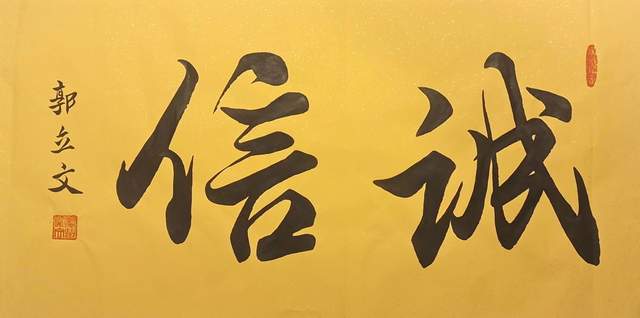 誠信
郭立文